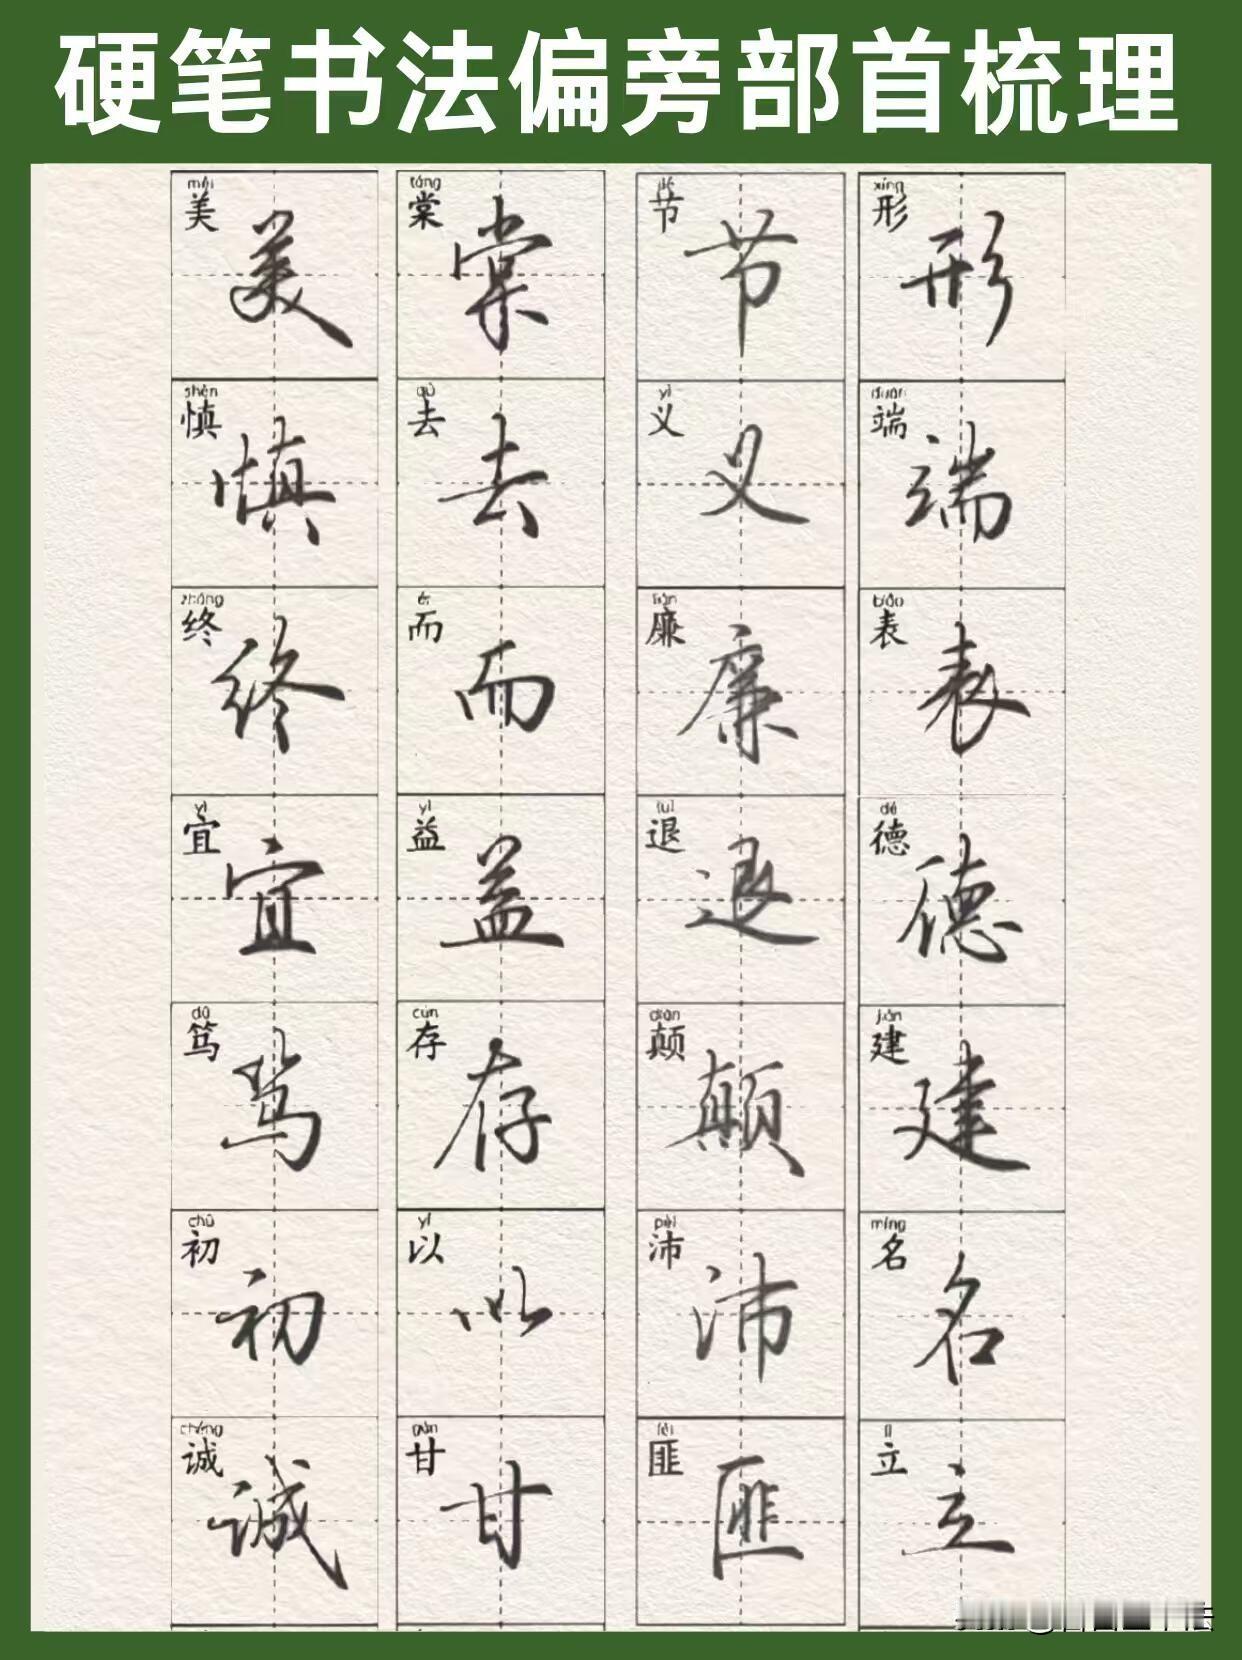 硬笔书法偏旁部首梳理
měi táng jié xíng
美 美 棠 棠 节 节 形 形
shèn qù yì duān
慎 慎 去 去 义 义 端 端
zhōng ér lián biǎo
终 终 而 而 廉 廉 表 表
yí yì tuì dé
宜 宜 益 益 退 退 德 德
dǔ cún diān jiàn
笃 笃 存 存 颠 颠 建 建
chū yǐ pèi míng
初 初 以 以 沛 沛 名 名
chéng gān fěi lì
诚 诚 甘 甘 匪 匪 立 立